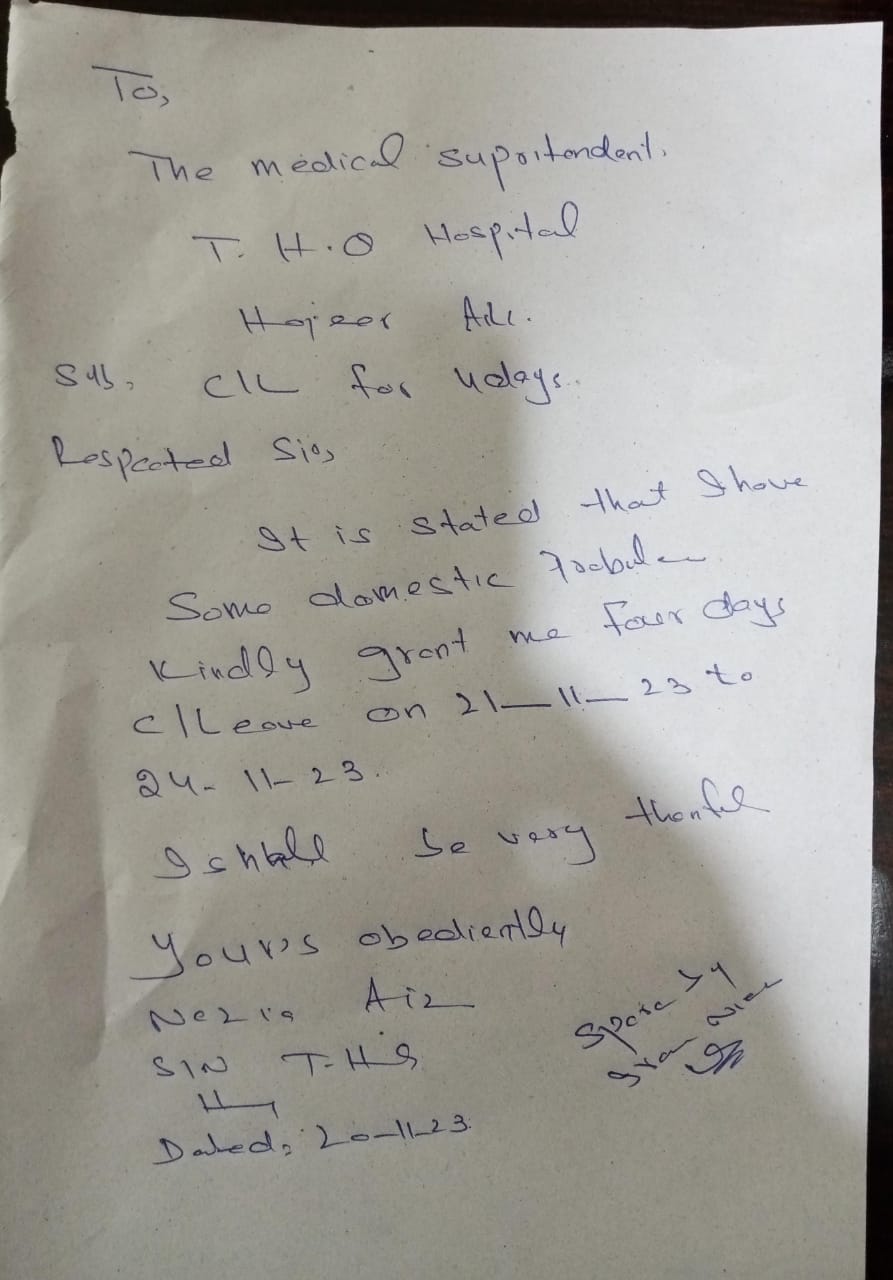 To,
The medical supritendent.
T. H. Q Hospital
Sub, C/L for 4 days.
Respected Sir,
It is stated that I have
Some domestic
Kindly grant me four days
C/Leave on 21-11-23 to
24-11-23.
I shall be very thankful
Your's obediently
Nazia
S/N T-H-Q
Dated, 20-11-23.